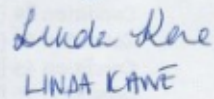 Linda Kane
LINDA KANE